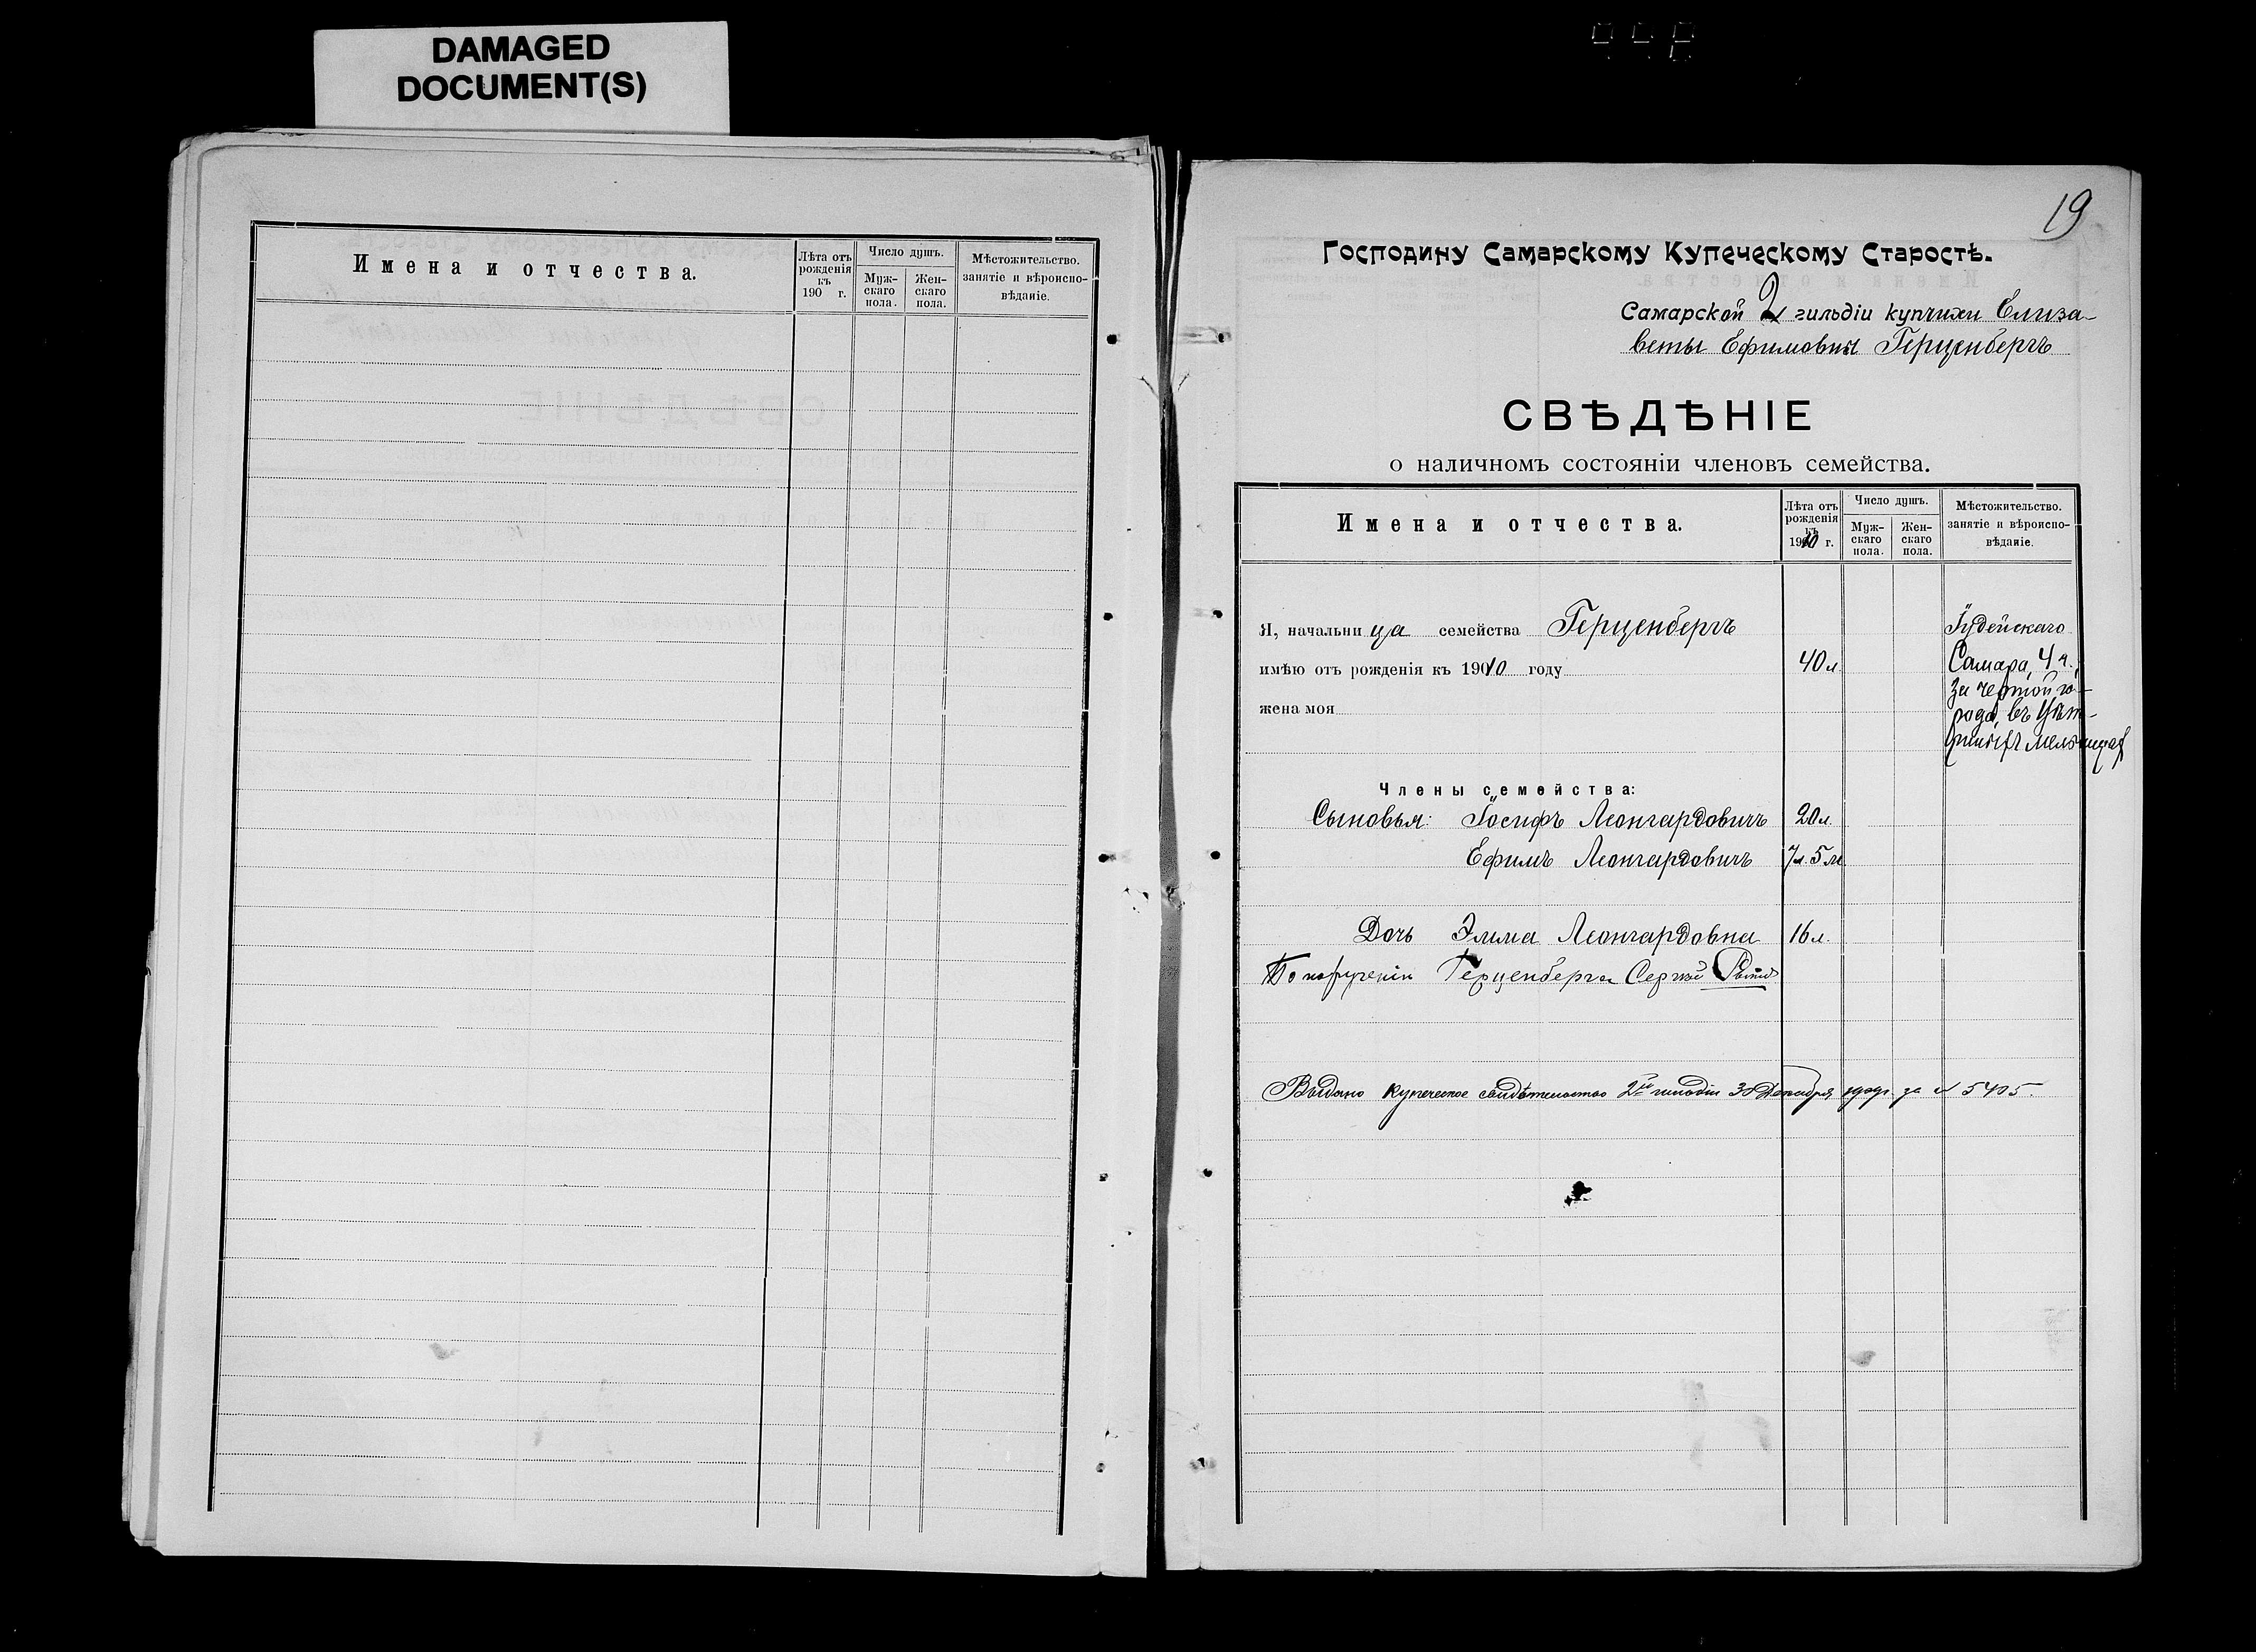 DAMAGED
DOCUMENT(S)
Имена и отчества.
Лѣта отъ рожденія къ 190 г.
Число душъ.
Мужскаго пола.
Женскаго пола.
Мѣстожительство. занятіе и вѣроисповѣданіе.
19
Господину Самарскому Купеческому Старостѣ.
Самарской 2 гильдіи купчихи Елиза-
веты Ефимовны Герценбергъ
СВѢДѢНІЕ
о наличномъ состояніи членовъ семейства.
Имена и отчества.
Лѣта отъ рожденія къ 1910 г.
Число душъ.
Муж-
скаго
пола.
Жен-
скаго
пола.
Мѣстожительство.
занятіе и вѣроиспо-
вѣданіе.
Я, начальница семейства Герценбергъ
Іудейскаго
имѣю отъ рожденія къ 1910 году 40 л.
Самара, 4 ч.,
за чертой го-
жена моя
рода, въ
Члены семейства:
Сыновья: Іосифъ Леонгардовичъ 20 л.
Ефимъ Леонгардовичъ 7 л. 5 м
Дочь Эмма Леонгардовна 16 л.
По порученію Герценберга Сергѣй
Выдано купеческое свидѣтельство 2й гильдіи Декабря 1909 г. за № 5405.